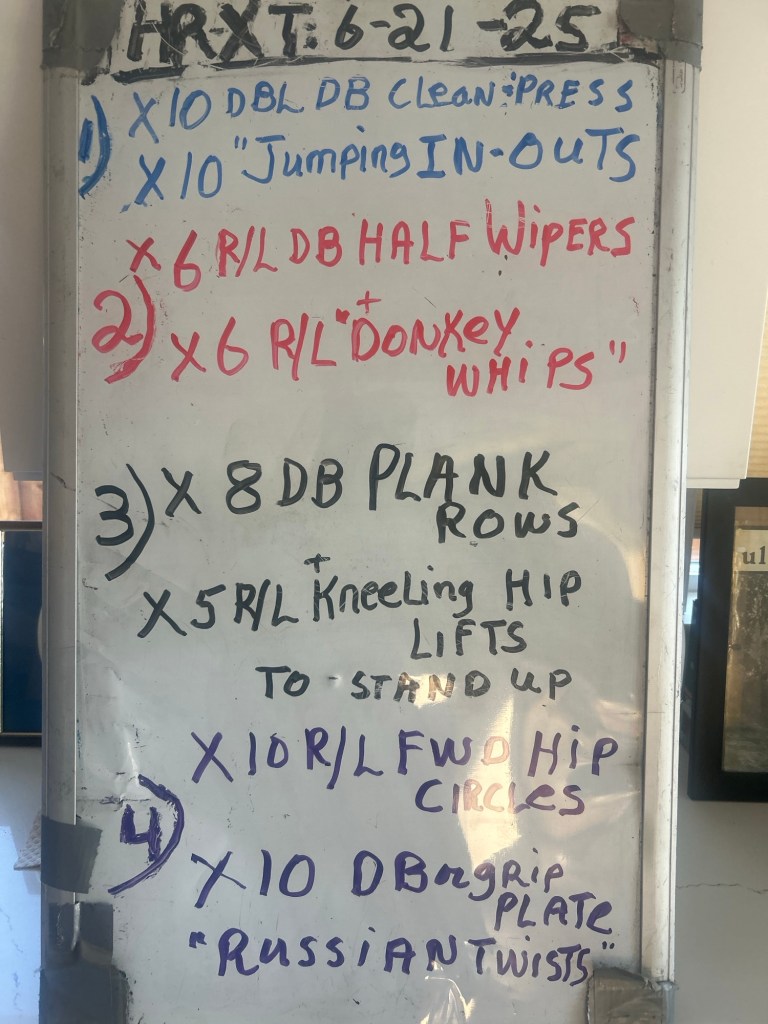 HRXT: 6-21-25
1) X10 DBL DB Clean & PRESS
X10 "Jumping IN-OUTS
X 6 R/L DB HALF WIPERS
+
2) X6 R/L "DONKEY
WHIPS"
3) X 8 DB PLANK
ROWS
+
X5 R/L Kneeling HIP
LIFTS
TO - STAND UP
X10 R/L FWD HIP
CIRCLES
4)
X10 DB or gRIP
PLATE
"RUSSIAN TWISTS"
ul